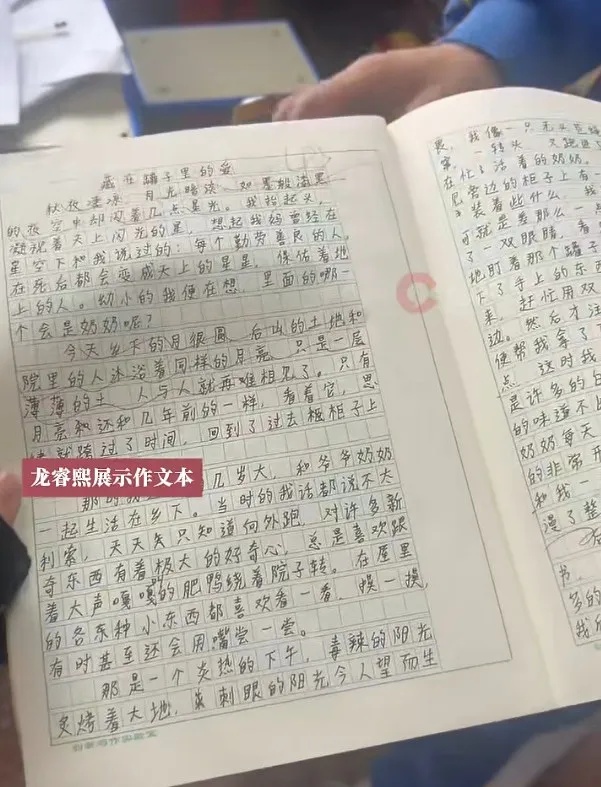 藏在罐子里的爱
秋夜凄凉，月光暗淡，如墨般漆黑
的夜空中却闪着几点星光。我抬起头，
凝视着天上闪光的星，想起我妈曾经在
星空下和我说过的：每个勤劳善良的人，
在死后都会变成天上的星星，保佑着地
上的人。幼小的我便在想，里面的哪一
个会是奶奶呢？
今天乡下的月很圆，后山的土地和
院里的人沐浴着同样的月亮，只是一层
薄薄的土，人与人就再难相见了。只有
月亮和还和几年前的一样，看着它，思
绪就跨过了时间，回到了过去柜柜子上
龙睿熙展示作文本
那的我 几岁大，和爷爷奶奶
一起生活在乡下。当时的我话都说不大
利索，天天只知道向外跑，对许多新
奇东西有着极大的好奇心，总是喜欢跟
着大声嘎嘎的肥鸭绕着院子转。在屋里
的各东种小东西都喜欢看一看，摸一摸，
有时甚至还会用嘴尝一尝。
那是一个炎热的下午，毒辣的阳光
炙烤着大地，刺眼的阳光令人望而生
良，我像一只无头苍蝇
一转头，又跑进
在灶 活着的奶奶。
旁边的柜子上有一
装着些什么，我
可就是差那么一点
了，双眼瞎，看
地盯着那个罐子
下了手上的东西
来，赶忙用双
边。然后才注
便帮我拿了下
点，这时我
是许多的白
的味道不比
奶奶每天
的非常开
和我一
漫了整
书，
多的
我